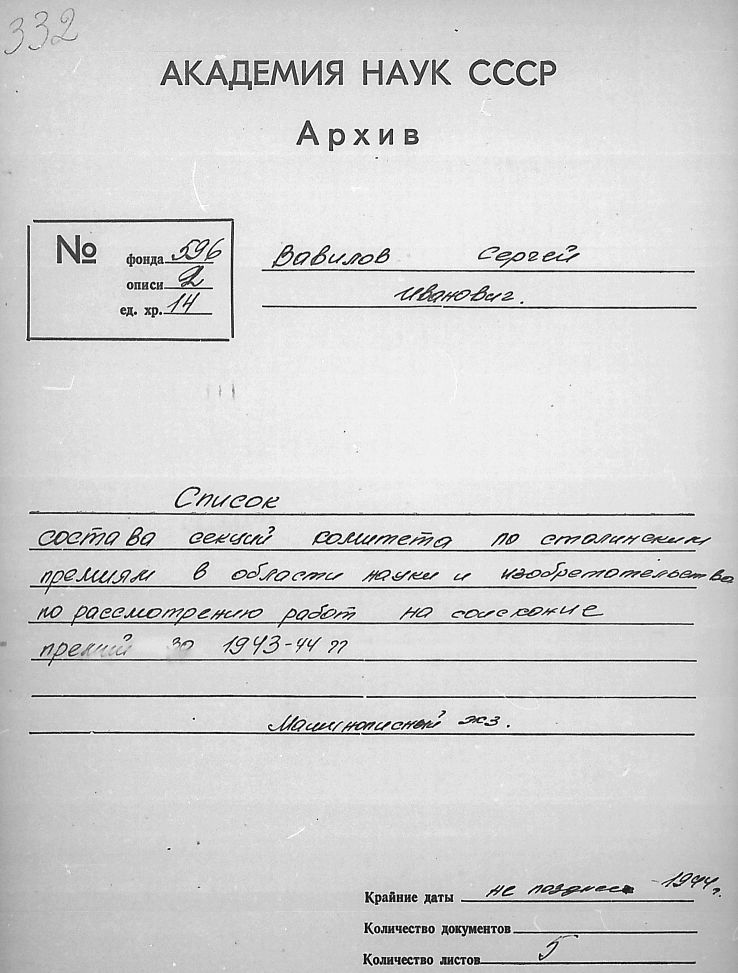 332
АКАДЕМИЯ НАУК СССР
Архив
№
фонда 596
описи 2
ед. хр. 14
Вавилов Сергей
Иванович.
Список
состава секций комитета по сталинским
премиям в области науки и изобретательства
по рассмотрению работ на соискание
премий за 1943-44 гг
Машинописный экз.
Крайние даты не позднее 1944г.
Количество документов
Количество листов 5